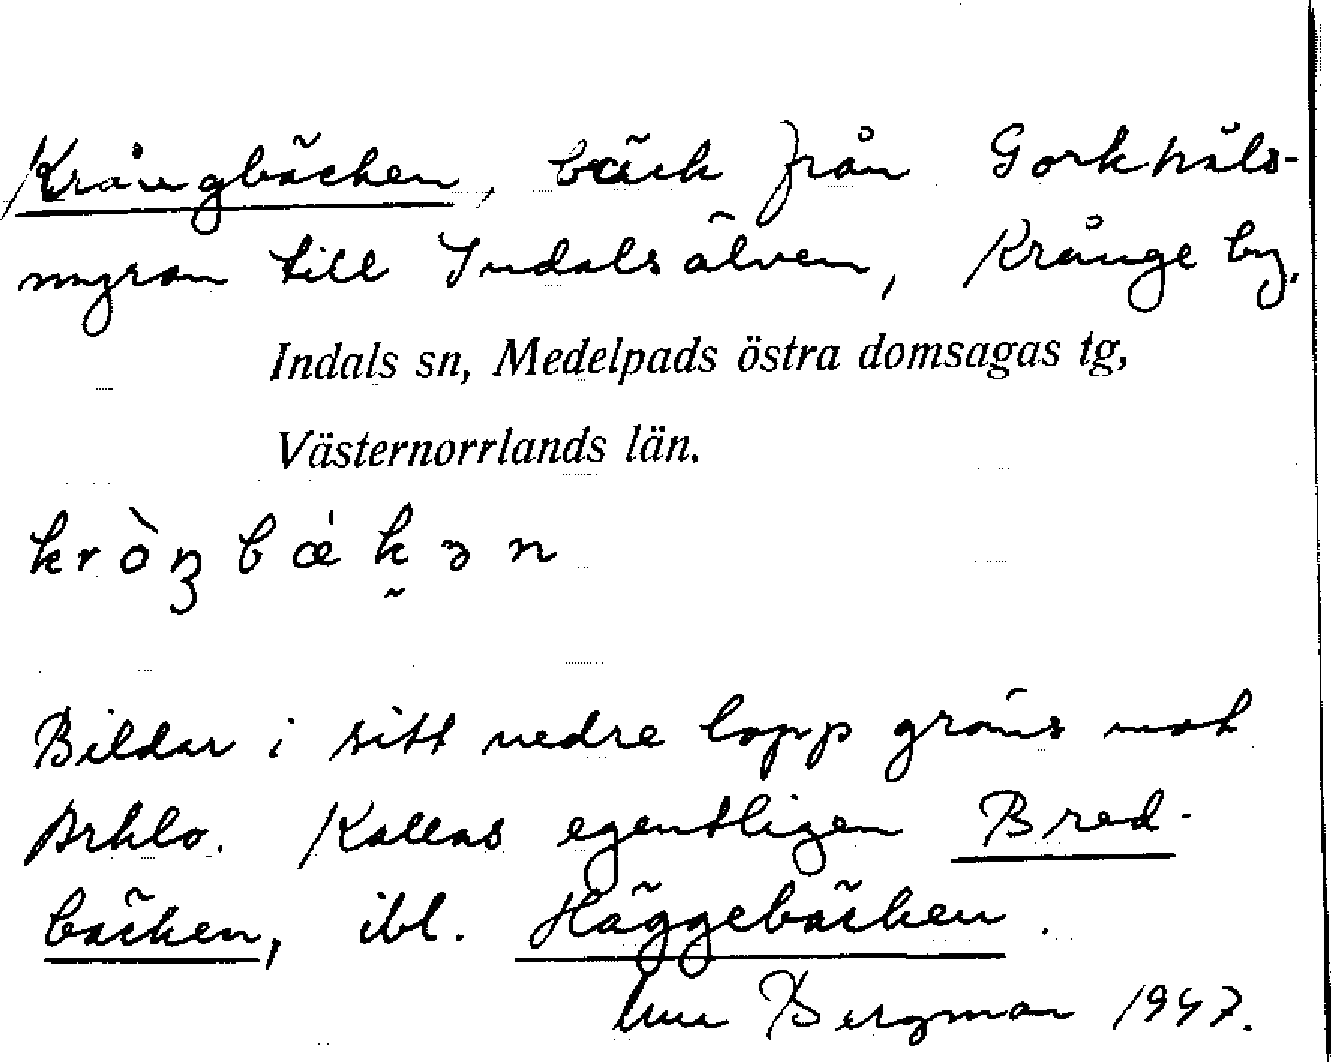 Krångbäcken, bäck från Gorkhåls-
myran till Indalsälven, Krånge by,
Indals sn, Medelpads östra domsagas tg,
Västernorrlands län.
kròŋbǽkən
Bildar i sitt nedre lopp gräns mot
Kallas egentligen Bred-
bäcken, ibl. Häggebäcken.
Bergman 1947.